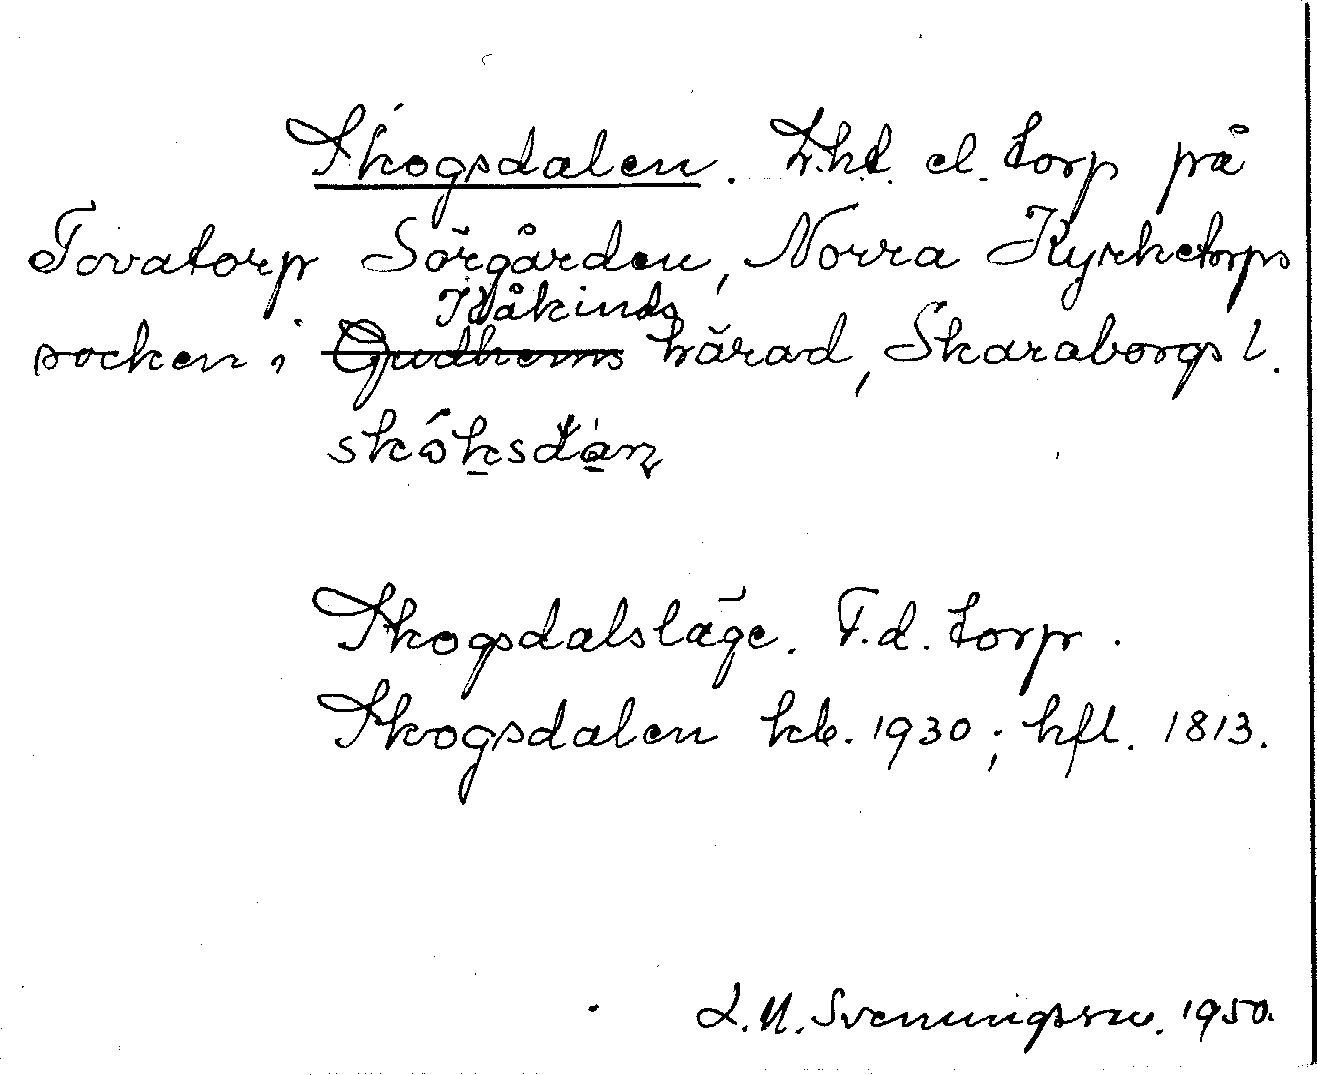 Skogsdalen. Lht. el. torp på
Tovatorp Sörgården, Norra Kyrketorps
Kåkinds
socken i Gudhems härad, Skaraborgs l.
Skogsdalsläge. F.d. torp.
Skogsdalen kb. 1930; hfl. 1813.
L.M. Svenungsson. 1950.